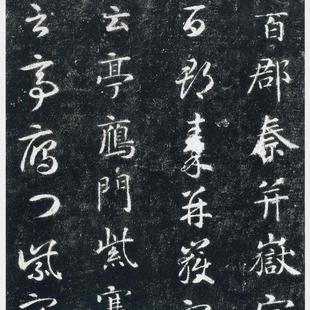 百郡秦并嶽
百郡秦并嶽
云亭鴈門紫塞
云亭鴈門紫